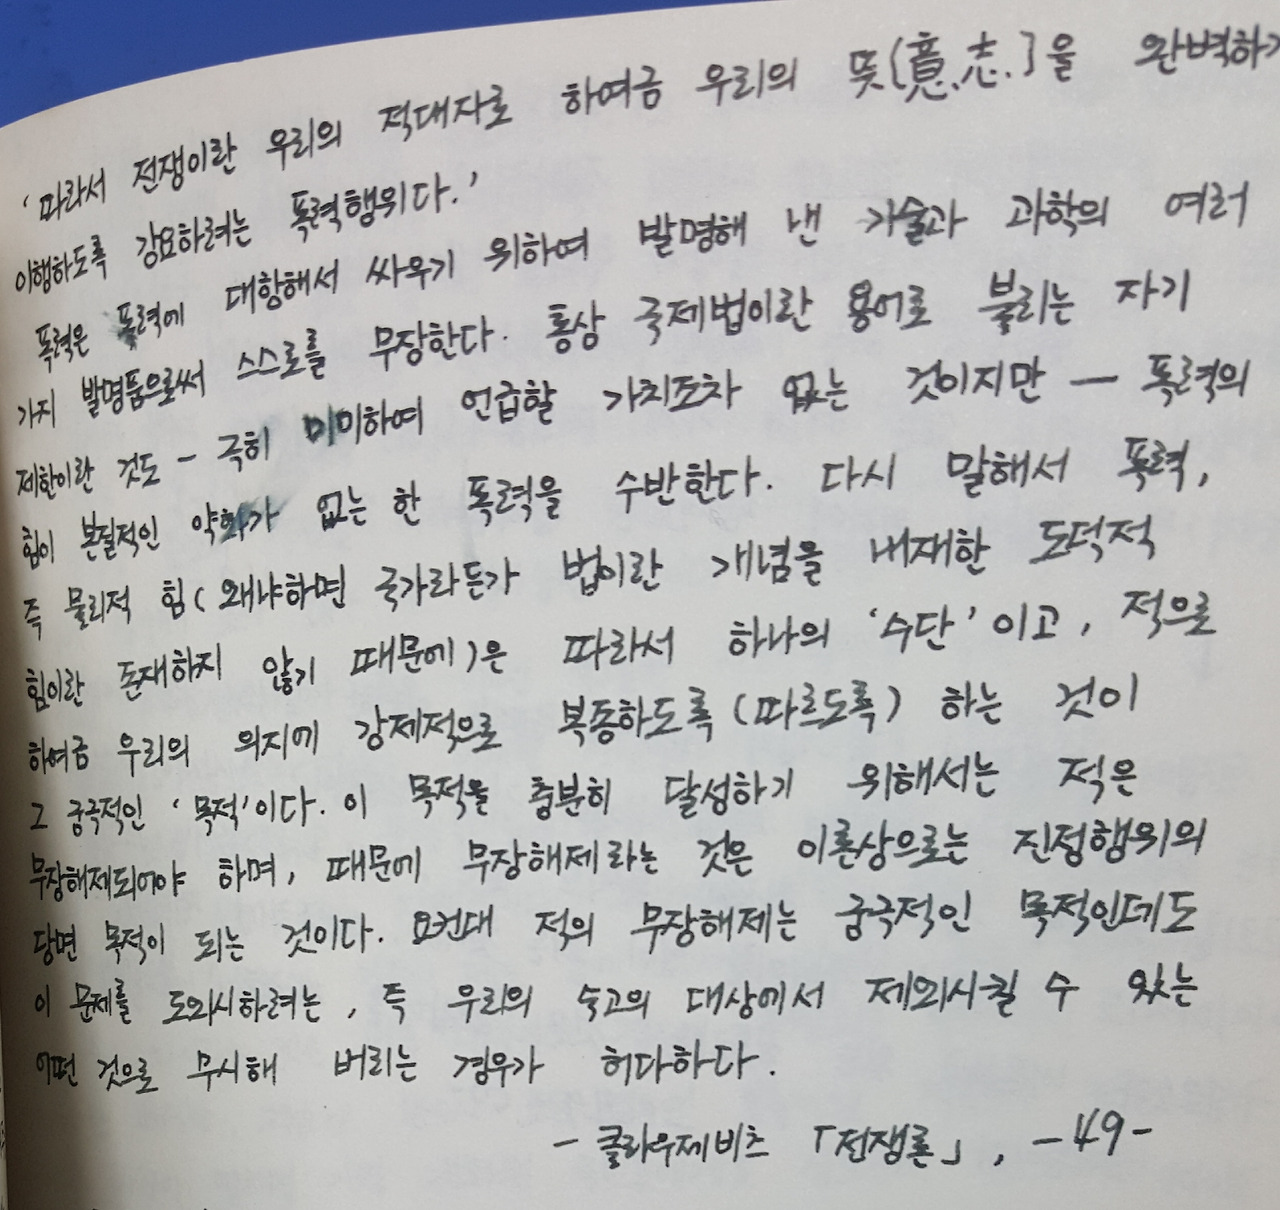 '따라서 전쟁이란 우리의 적대자로 하여금 우리의 뜻[意志]을 완벽하게
이행하도록 강요하려는 폭력행위다.'
폭력은 폭력에 대항해서 싸우기 위하여 발명해 낸 기술과 과학의 여러
가지 발명품으로써 스스로를 무장한다. 통상 국제법이란 용어로 불리는 자기
제한이란 것도 - 극히 미미하여 언급할 가치조차 없는 것이지만 - 폭력의
힘이 본질적인 약화가 없는 한 폭력을 수반한다. 다시 말해서 폭력,
즉 물리적 힘(왜냐하면 국가라든가 법이란 개념을 내재한 도덕적
힘이란 존재하지 않기 때문에)은 따라서 하나의 '수단'이고, 적으로
하여금 우리의 의지에 강제적으로 복종하도록(따르도록) 하는 것이
그 궁극적인 '목적'이다. 이 목적을 충분히 달성하기 위해서는 적은
무장해제되어야 하며, 때문에 무장해제라는 것은 이론상으로는 진정행위의
당면 목적이 되는 것이다. 요컨대 적의 무장해제는 궁극적인 목적인데도
이 문제를 도외시하려는, 즉 우리의 숙고의 대상에서 제외시킬 수 있는
어떤 것으로 무시해 버리는 경우가 허다하다.
- 클라우제비츠 「전쟁론」, -49-